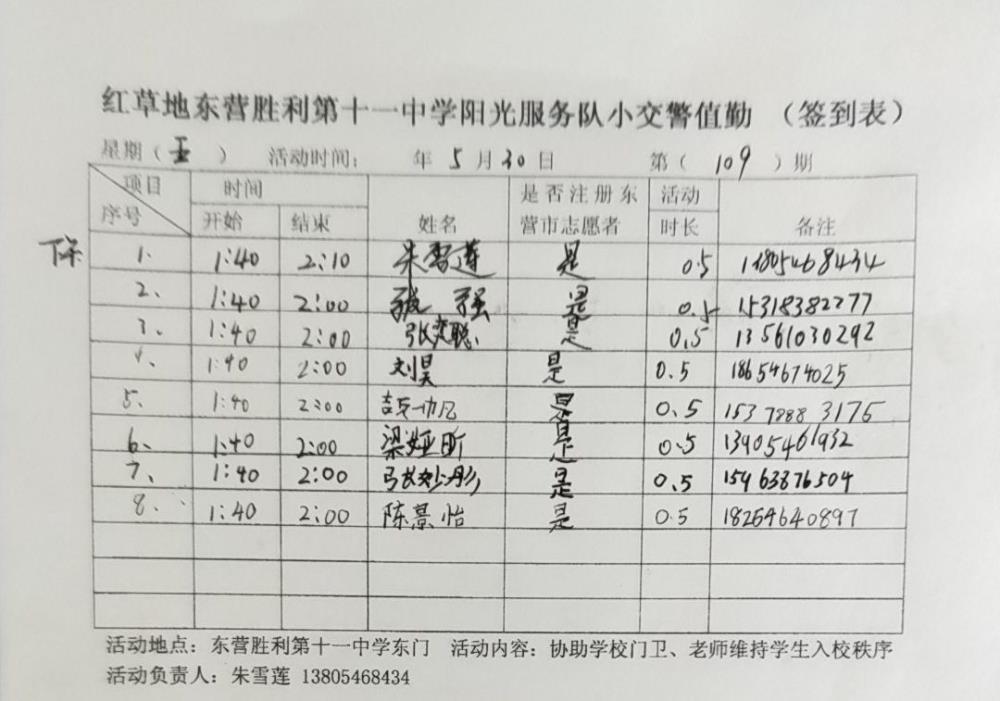 红草地东营胜利第十一中学阳光服务队小交警值勤 (签到表)
星期(五) 活动时间: 年5月30日 第(109)期
项目 时间 是否注册东 活动
序号 开始 结束 姓名 营市志愿者 时长 备注
1. 1:40 2:10 朱雪莲 是 0.5 13805468434
2、 1:40 2:00 张强 是 0.5 15318382277
3、 1:40 2:00 张奕聪 是 0.5 13561030292
4、 1:40 2:00 刘昊 是 0.5 18654674025
5、 1:40 2:00 是 0.5 153 7888 3176
6、 1:40 2:00 梁娅昕 是 0.5 13905461932
7、 1:40 2:00 张妙彤 是 0.5 15963876504
8. 1:40 2:00 陈景怡 是 0.5 18254640897
活动地点: 东营胜利第十一中学东门 活动内容: 协助学校门卫、老师维持学生入校秩序
活动负责人: 朱雪莲 13805468434